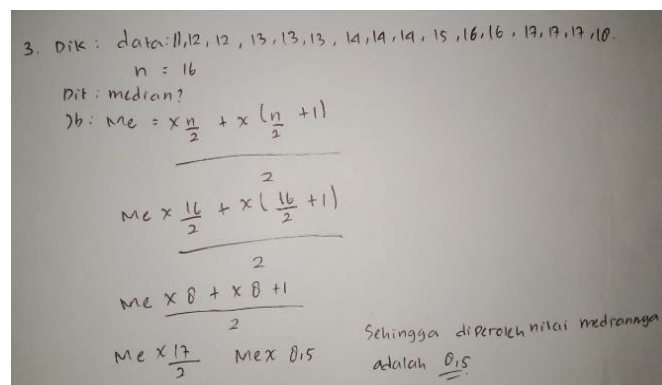 3. Dik : data: 11,12, 12, 13, 13, 13, 14, 14, 14, 15, 16, 16, 17, 17, 17, 18.
n = 16
Dit : median?
Jb : Me = x n/2 + x (n/2 + 1)
2
Me x 16/2 + x ( 16/2 + 1)
2
Me x 8 + x 8 + 1
2
Me x 17/2 Me x 8,5
Sehingga diperoleh nilai mediannya
adalah 8,5